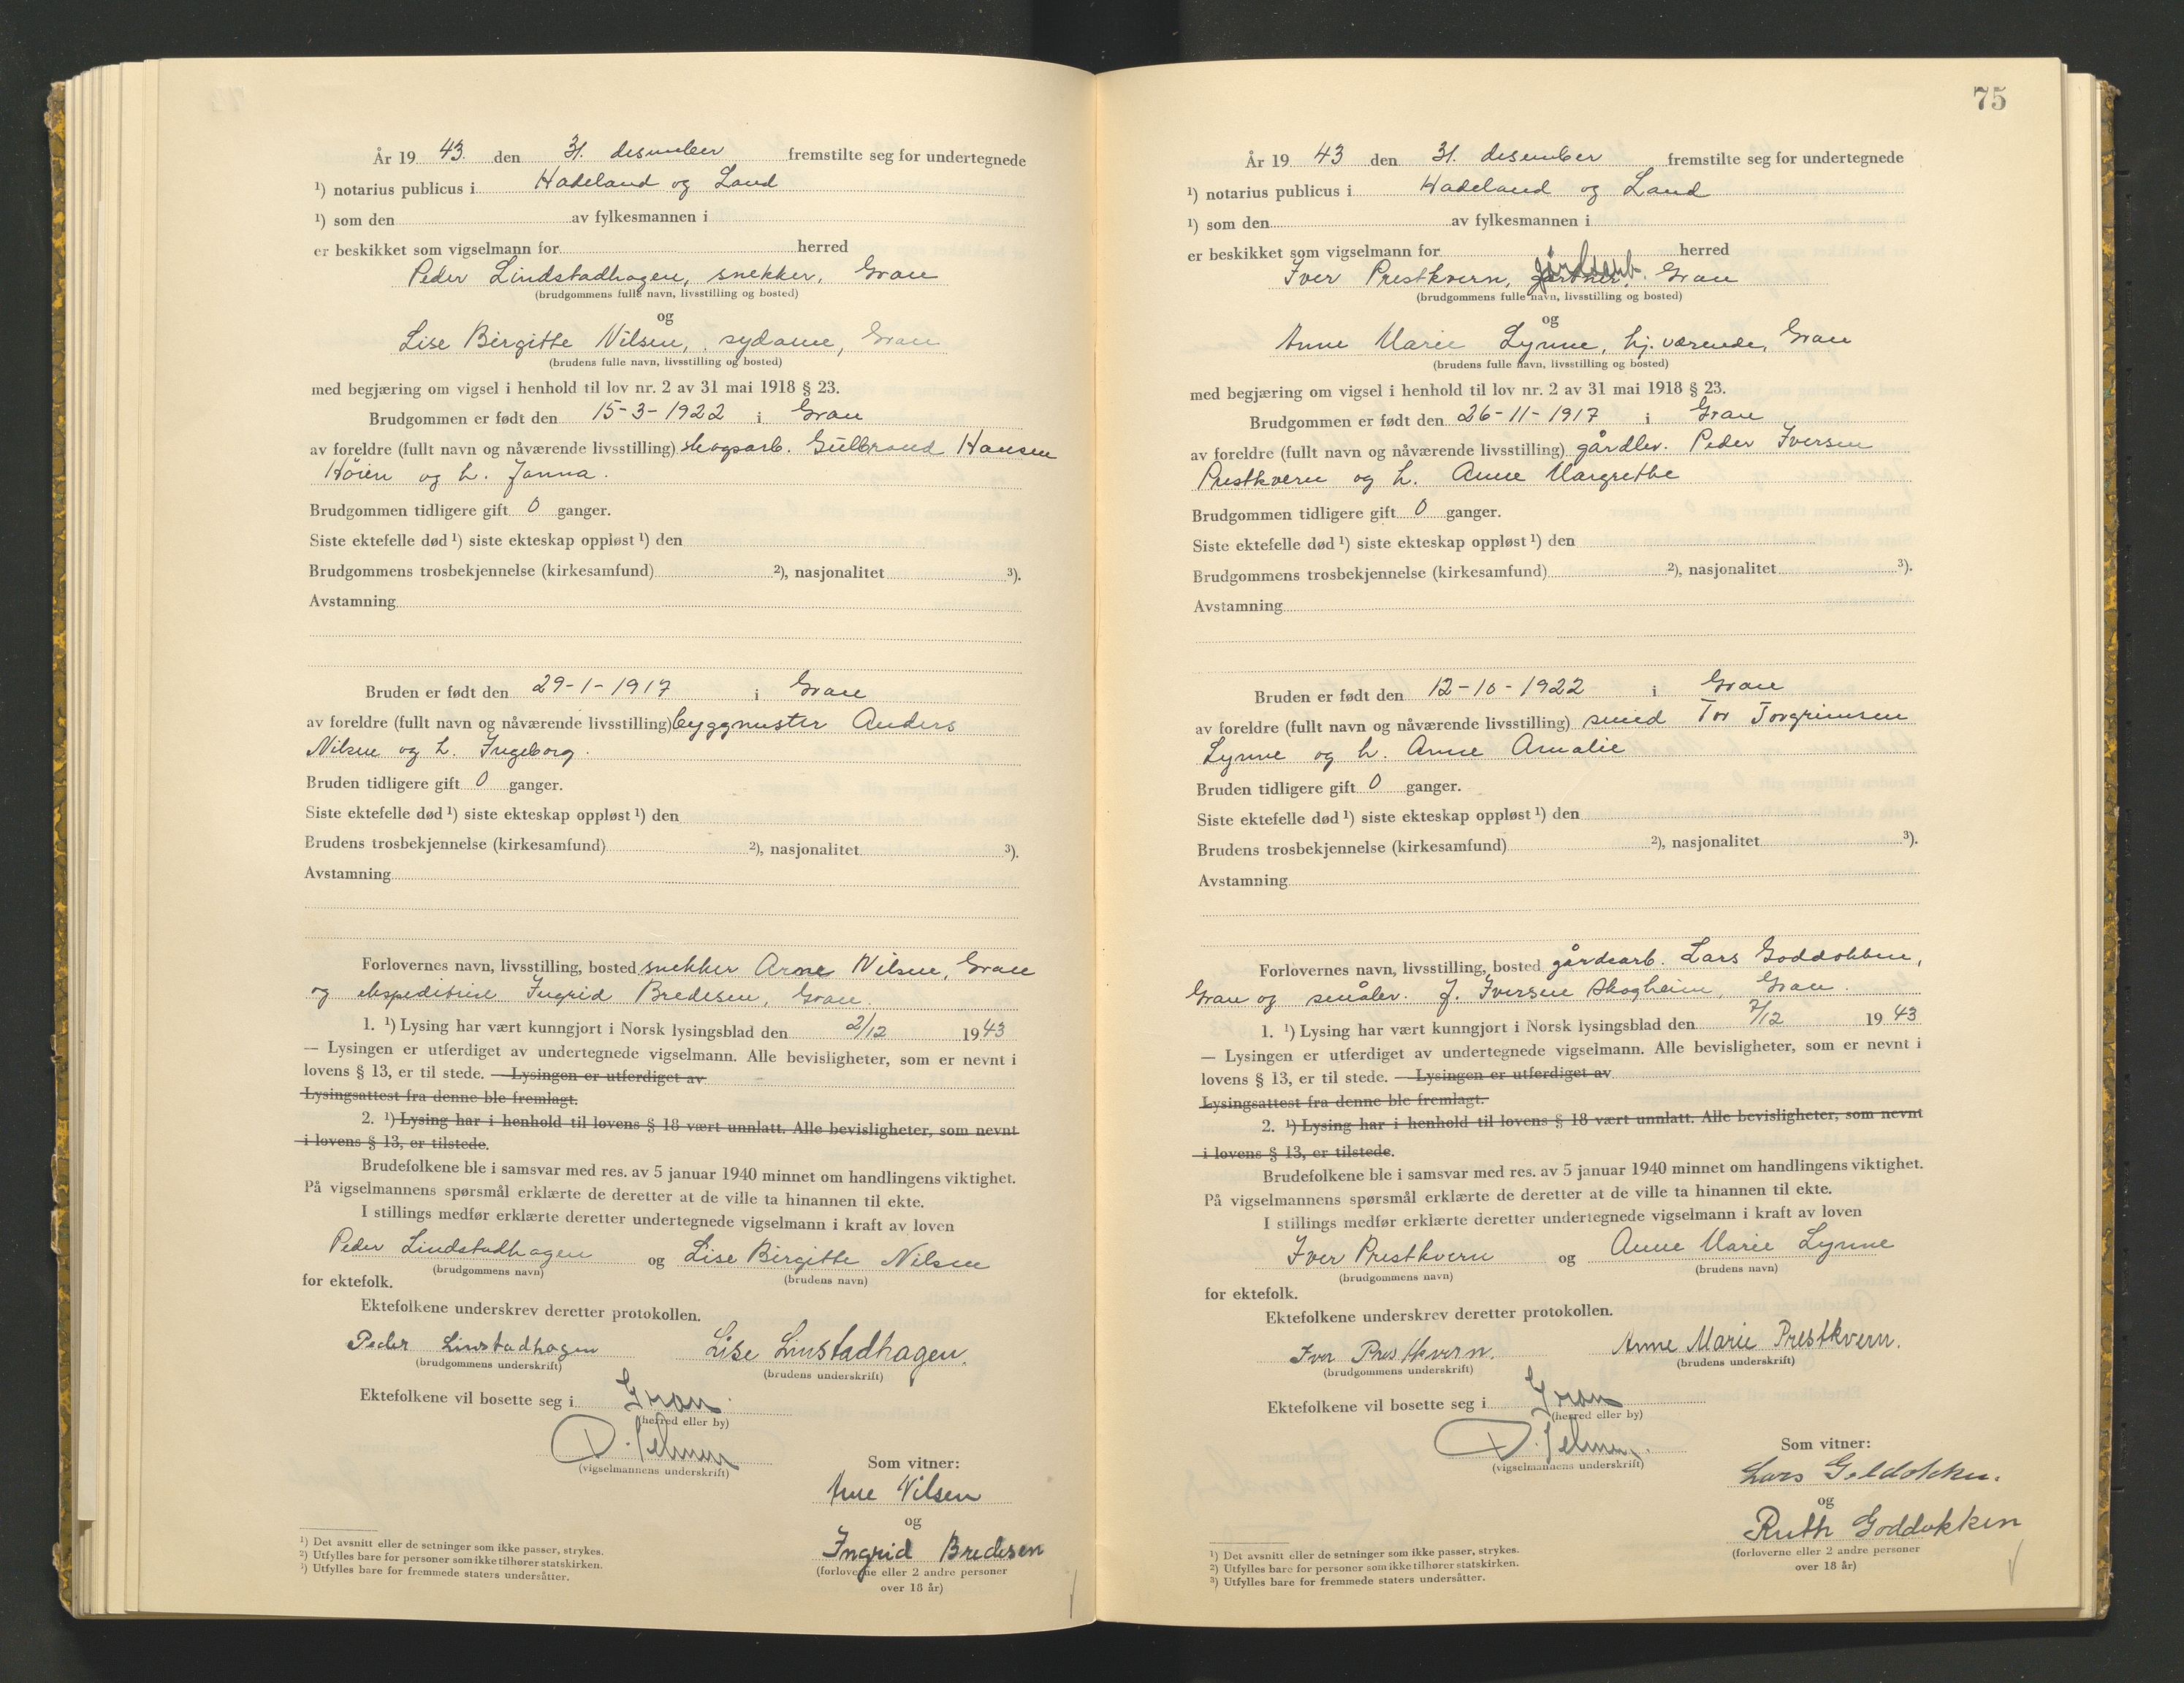 År 19 43. den 31. desember fremstilte seg for undertegnede
¹) notarius publicus i Hadeland og Land
¹) som den av fylkesmannen i
er beskikket som vigselmann for herred
Peder Lindstadhagen, snekker, Gran
(brudgommens fulle navn, livsstilling og bosted)
og
Lise Birgitte Nilsen, sydame, Gran
(brudens fulle navn, livsstilling og bosted)
med begjæring om vigsel i henhold til lov nr. 2 av 31 mai 1918 § 23.
Brudgommen er født den 15-3-1922 i Gran
av foreldre (fullt navn og nåværende livsstilling) skogsarb. Gulbrand Hansen
Höien og h. Janna.
Brudgommen tidligere gift 0 ganger.
Siste ektefelle død ¹) siste ekteskap oppløst ¹) den
Brudgommens trosbekjennelse (kirkesamfund) ²), nasjonalitet ³).
Avstamning
Bruden er født den 29-1-1917 i Gran
av foreldre (fullt navn og nåværende livsstilling) byggmester Anders
Nilsen og h. Ingeborg.
Bruden tidligere gift 0 ganger.
Siste ektefelle død ¹) siste ekteskap oppløst ¹) den
Brudens trosbekjennelse (kirkesamfund) ²), nasjonalitet ³).
Avstamning
Forlovernes navn, livsstilling, bosted snekker Arne Nilsen, Gran
og ekspeditrise Ingrid Bredesen, Gran.
1. ¹) Lysing har vært kunngjort i Norsk lysingsblad den 2/12 19 43
— Lysingen er utferdiget av undertegnede vigselmann. Alle bevisligheter, som er nevnt i
lovens § 13, er til stede. — Lysingen er utferdiget av
Lysingsattest fra denne ble fremlagt.
2. ¹) Lysing har i henhold til lovens § 18 vært unnlatt. Alle bevisligheter, som nevnt
i lovens § 13, er tilstede.
Brudefolkene ble i samsvar med res. av 5 januar 1940 minnet om handlingens viktighet.
På vigselmannens spørsmål erklærte de deretter at de ville ta hinannen til ekte.
I stillings medfør erklærte deretter undertegnede vigselmann i kraft av loven
Peder Lindstadhagen og Lise Birgitte Nilsen
(brudgommens navn) (brudens navn)
for ektefolk.
Ektefolkene underskrev deretter protokollen.
Peder Linstadhagen Lise Linstadhagen.
(brudgommens underskrift) (brudens underskrift)
Ektefolkene vil bosette seg i Gran.
(herred eller by)
(vigselmannens underskrift)
Som vitner:
Arne Nilsen
og
Ingrid Bredesen
(forloverne eller 2 andre personer
over 18 år)
¹) Det avsnitt eller de setninger som ikke passer, strykes.
²) Utfylles bare for personer som ikke tilhører statskirken.
³) Utfylles bare for fremmede staters undersåtter.
75
År 19 43 den 31. desember fremstilte seg for undertegnede
¹) notarius publicus i Hadeland og Land
¹) som den av fylkesmannen i
er beskikket som vigselmann for herred
Iver Prestkvern, Gran
(brudgommens fulle navn, livsstilling og bosted)
og
Anne Marie Lynne, hj. værende, Gran
(brudens fulle navn, livsstilling og bosted)
med begjæring om vigsel i henhold til lov nr. 2 av 31 mai 1918 § 23.
Brudgommen er født den 26-11-1917 i Gran
av foreldre (fullt navn og nåværende livsstilling) gårdbr. Peder Iversen
Prestkvern og h. Anne Margrethe
Brudgommen tidligere gift 0 ganger.
Siste ektefelle død ¹) siste ekteskap oppløst ¹) den
Brudgommens trosbekjennelse (kirkesamfund) ²), nasjonalitet ³).
Avstamning
Bruden er født den 12-10-1922 i Gran
av foreldre (fullt navn og nåværende livsstilling) smed Tor Torgrimsen
Lynne og h. Anne Amalie
Bruden tidligere gift 0 ganger.
Siste ektefelle død ¹) siste ekteskap oppløst ¹) den
Brudens trosbekjennelse (kirkesamfund) ²), nasjonalitet ³).
Avstamning
Forlovernes navn, livsstilling, bosted gårdsarb. Lars Goddokken,
Gran og småbr. J. Iversen Skogheim, Gran.
1. ¹) Lysing har vært kunngjort i Norsk lysingsblad den 7/12 19 43
— Lysingen er utferdiget av undertegnede vigselmann. Alle bevisligheter, som er nevnt i
lovens § 13, er til stede. — Lysingen er utferdiget av
Lysingsattest fra denne ble fremlagt.
2. ¹) Lysing har i henhold til lovens § 18 vært unnlatt. Alle bevisligheter, som nevnt
i lovens § 13, er tilstede.
Brudefolkene ble i samsvar med res. av 5 januar 1940 minnet om handlingens viktighet.
På vigselmannens spørsmål erklærte de deretter at de ville ta hinannen til ekte.
I stillings medfør erklærte deretter undertegnede vigselmann i kraft av loven
Iver Prestkvern og Anne Marie Lynne
(brudgommens navn) (brudens navn)
for ektefolk.
Ektefolkene underskrev deretter protokollen.
Iver Prestkvern. Anne Marie Prestkvern.
(brudgommens underskrift) (brudens underskrift)
Ektefolkene vil bosette seg i Gran
(herred eller by)
(vigselmannens underskrift)
Som vitner:
Lars Goddokken.
og
Ruth Goddokken
(forloverne eller 2 andre personer
over 18 år)
¹) Det avsnitt eller de setninger som ikke passer, strykes.
²) Utfylles bare for personer som ikke tilhører statskirken.
³) Utfylles bare for fremmede staters undersåtter.